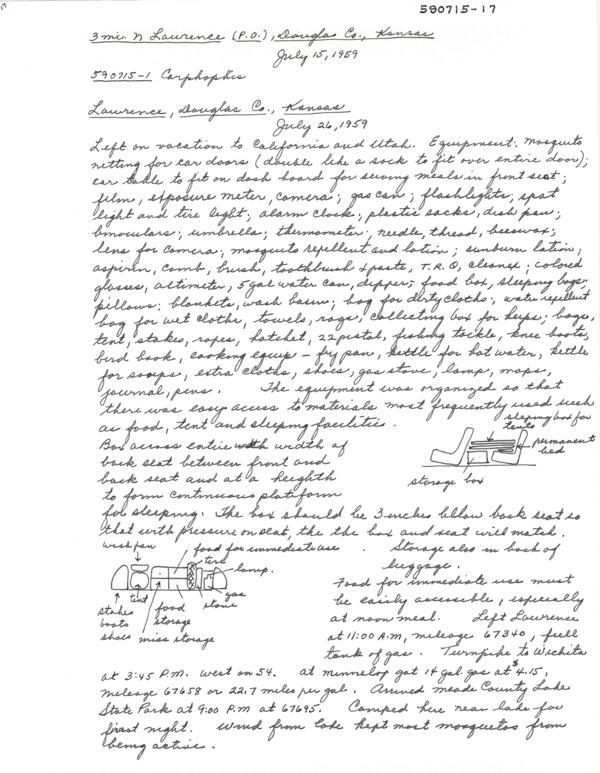 590715-17
3 mi. N Lawrence (P.O.), Douglas Co., Kansas
July 15, 1959
590715-1 Carphophis
Lawrence, Douglas Co., Kansas
July 26, 1959
Left on vacation to California and Utah. Equipment: mosquito
netting for car doors (double like a sock to fit over entire door);
car table to fit on dash board for serving meals in front seat;
film, exposure meter, camera; gas can; flashlights, spot
light and tire light; alarm clock; plastic sacks, dish pan;
binoculars; umbrella; thermometer, needle, thread, beeswax;
lens for camera; mosquito repellent and lotion; sunburn lotion,
aspirin, comb, brush, toothbrush & paste, T.R.Q, cleanex; colored
glasses, altimeter, 5 gal water can, dipper; food box, sleeping bags;
pillows; blankets, wash basin; bag for dirty cloths; water repellent
bag for wet cloths, towels, rags, collecting box for herps; bags,
tent, stakes, ropes, hatchet, 22 pistol, fishing tackle, knee boots,
bird book, cooking equip - fry pan, kettle for hot water, kettle
for soups, extra cloths, shoes, gas stove, lamp, maps,
journal, pens. The equipment was organized so that
there was easy access to materials most frequently used such
as food, tent and sleeping facilities.
sleping box for
tents
permanent
bed
storage box
Box across entire width of
back seat between front and
back seat and at a heighth
to form continuous platform
for sleeping. The box should be 3 inches below back seat so
that with pressure on seat, the the box and seat will match.
wash pan
food for immediate use
tire
lamp.
gas
stove
tent
stakes
boots
shoes
food
storage
misc storage
. Storage also in back of
luggage.
Food for immediate use must
be easily accessible, especially
at noon meal. Left Lawrence
at 11:00 A.M, mileage 67340, full
tank of gas. Turnpike to Wichita
at 3:45 P.M. west on 54. at Minneola got 14 gal gas at $4.15,
mileage 67658 or 22.7 miles per gal. Arrived Meade County Lake
State Park at 9:00 P.M at 67695. Camped here near lake for
first night. Wind from lake kept most mosquetos from
being active.